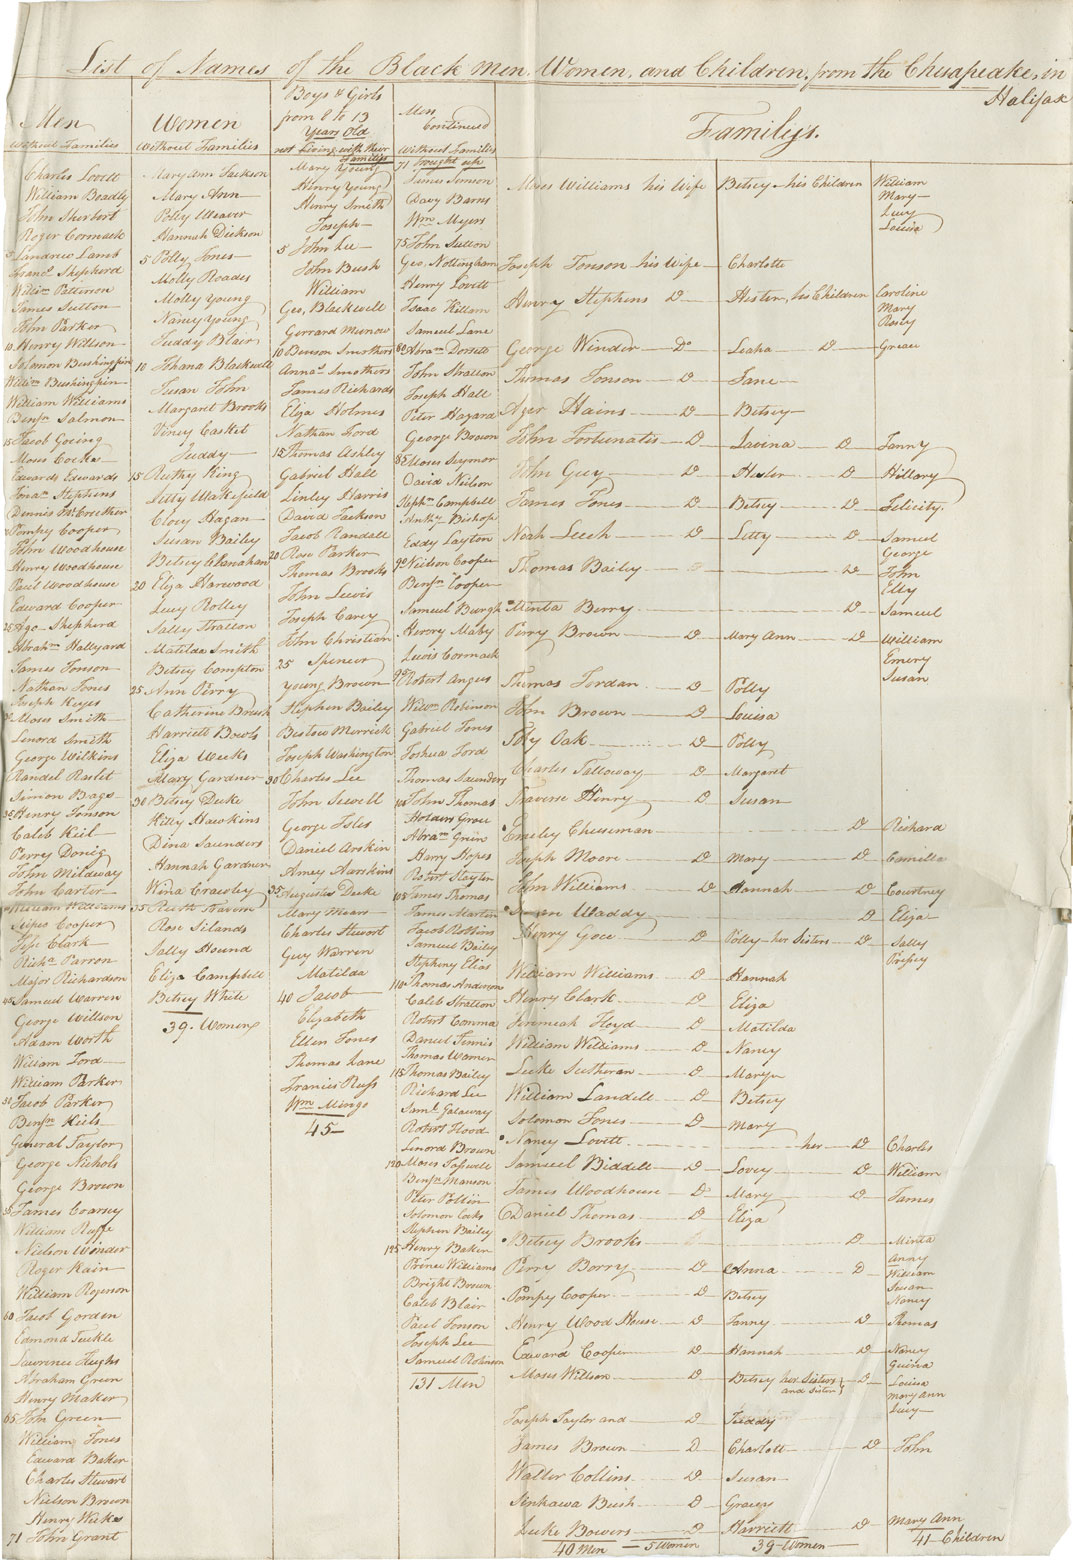 List of Names of the Black Men, Women, and Children, from the Chesapeake, in
Halifax
Men
Without Families
Charles Lovett
William Beadly
John Sherbert
Roger Cormack
5 Landrew Lamb
Shepherd
Willim Patterson
James Sutton
John Parker
10 Henry Willson
Solomon Bushingpin
Willim Bushingpin
William Williams
Benjn Salmon
15 Jacob Goeing
Moses Cocke
Edwards Edwards
Jonan Stephens
Dennis
Pompy Cooper
John Woodhouse
Henry Woodhouse
Paul Woodhouse
Edward Cooper
25 Ago Shepherd
Abrahm Hallyard
James Jonson
Nathan Jones
Joseph Keyes
Moses Smith
Lenord Smith
George Wilkins
Randel Raslit
Simon Bags
35 Henry Jonson
Caleb Kiel
Perry Donig
John Mildway
John Carter
William Williams
Cooper
John Clark
Richd Parron
Major Richardson
45 Samuel Warren
George Willson
Adam Worth
William Ford
William Parker
50 Jacob Parker
Benjn Kiels
General Taylor
George Nichols
George Brown
James Coarsey
William Ruffe
Nielson Winder
Roger Kain
William Rogerson
60 Jacob Gorden
Edmond Tuckle
Lawrence Hughs
Abraham Green
Henry Maker
65 John Green
William Jones
Edward Baker
Charles Stewart
Nielson Brown
Henry Weeks
71 John Grant
Women
Without Families
Mary Ann Jackson
Mary Ann
Polly Weaver
Hannah Dickson
5 Polly Jones
Molly Roades
Molly Young
Nancy Young
Juddy Blair
10 Johana Blackwell
Susan John
Margaret Brooks
Viney Casket
Juddy
15 Ruthy King
Letty Wakefield
Cloey Hagan
Susan Bailey
Betsey Chanahan
20 Eliza Harwood
Lucy Rolley
Sally Stratton
Matilda Smith
Betsey Compton
25 Ann Perry
Catherine Brush
Harriett Bowls
Eliza Weeks
Mary Gardner
30 Betsey Duke
Kitty Hawkins
Dina Saunders
Hannah Gardner
Wina Crawley
35 Ruth Tavern
Rose Silands
Sally Hound
Eliza Campbell
Betsey White
39 - Women
Boys & Girls
from 8 to 13
Years Old
not Living with their
Familys
Mary Young
Henry Young
Henry Smith
Joseph
5 John Lee
John Bush
William
Geo, Blackwell
Gerrard Munow
10 Benson Smothers
Annas Smothers
James Richards
Eliza Holmes
Nathan Ford
15 Thomas Ashley
Gabriel Hall
Linley Harris
David Jackson
Jacob Randall
20 Rose Parker
Thomas Brooks
John Lewis
Joseph Carey
John Christian
25 Spencer
Young Brown
Stephen Bailey
Bestow Merrick
Joseph Washington
30 Charles Lee
John Sewell
George Isles
Daniel Arskin
Amey Hawkins
35 Augustus Duke
Mary Mears
Charles Stewort
Guy Warren
Matilda
40 Jacob
Elizabeth
Ellen Jones
Thomas Lane
Francies Russ
Wm Mingo
45
Men
Continued
Without Families
71 brought up
James Jonson
Davy Barns
Wm Myers
75 John Sutton
Geo, Nottingham
Henry Lovett
Isaac Killam
Samuel Lane
80 Abram Dorsett
John Stratton
Joseph Hall
Peter Hazard
George Brown
85 Moses Seymor
David Nielson
Stephn Campbell
Bishop
Eddy Layton
90 Neilson Cooper
Benjn Cooper
Samuel Burgh
Henory Maby
Lewis Cormack
95 Robert Anges
Willm Robinson
Gabriel Jones
Joshua Ford
Thomas Saunders
100 John Thomas
Holders Grace
Abram Green
Harry Hopes
Robert Slayton
105 James Thomas
James Martin
Jacob Robbins
Samuel Bailey
Stepheny Elias
110 Thomas Anderson
Caleb Stratton
Robert Comma
Daniel Finnis
Thomas Warner
115 Thomas Bailey
Richard Lee
Saml Galaway
Robert Flood
Lenord Brown
120 Moses Tasswell
Benjn Manson
Peter Pollin
Solomon Cocks
Stephen Bailey
125 Henry Baker
Prince Williams
Bright Brown
Caleb Blair
Paul Jonson
Joseph Lee
Samuel Robinson
131 Men
Familys.
Moses Williams his Wife Betsey his Children William
Mary
Lucy
Louisa
Joseph Jonson his Wife Charlotte
Henry Stephens Do Hester his Children Caroline
Mary
Rosey
George Winder Do Leaha Do Grace
Thomas Jonson Do Jane
Ager Hains Do Betsey
John Fortunatis Do Lavina Do Fanny
John Guy Do Hester Do Hillary
James Jones Do Betsey Do Felicity.
Noah Leech Do Letty Do Samuel
George
Thomas Bailey Do John
Elly
Minta Berry Do Samuel
Perry Brown Do Mary Ann Do William
Emery
Susan
Thomas Jordan Do Polly
John Brown Do Louisa
Toby Oak Do Polly
Charles Talloway Do Margaret
Traverse Henry Do Susan
Emeley Cheeseman Do Richard
Joseph Moore Do Mary Do Camilla
John Williams Do Hannah Do Courtney
Susan Waddy Do Eliza
Henry Goce Do Polly her Sisters Do Sally
Prissey
William Williams Do Hannah
Henry Clark Do Eliza
Jerimeah Floyd Do Matilda
William Williams Do Nancy
Luke Sutheran Do Marya
William Landell Do Betsey
Solomon Jones Do Mary
Nancy Lovett her Do Charles
Samuel Biddell Do Lovey Do William
James Woodhouse Do Mary Do James
Daniel Thomas Do Eliza
Betsey Brooks Do Minta
Anny
Perry Borry Do Anna Do William
Susan
Pompy Cooper Do Betsey Nancy
Henry Wood House Do Fanny Do Thomas
Edward Cooper Do Hannah Do Nancy
Guina
Moses Willson Do Betsey her Sisters and Sister Do Louisa
Mary Ann
Lucy
Joseph Taylor and Do Juddy
James Brown Do Charlott Do John
Walter Collins Do Susan
Sinkawa Bush Do Gracey
Luke Bowers Do Harriett Do Mary Ann
40 Men 5 Women 39 Women 41 Children